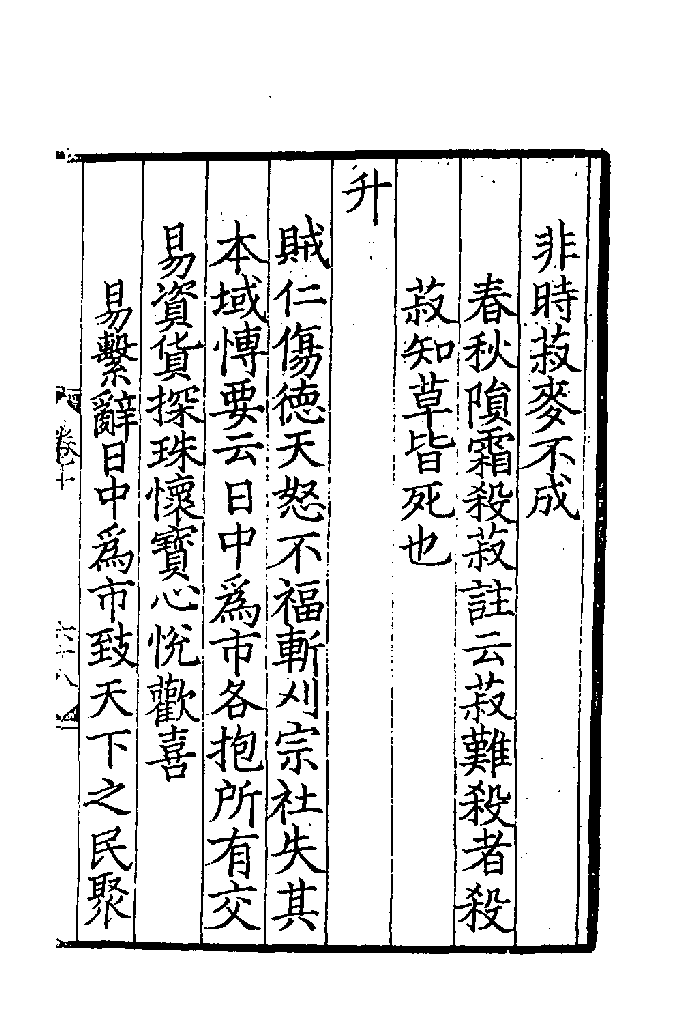 非時菽麥不成
春秋隕霜殺菽註云菽難殺者殺
菽知草皆死也
升
賊仁傷徳天怒不福斬刈宗社失其
本域慱要云日中爲市各抱所有交
易資貨探珠懷寳心悅歡喜
易繫辭日中爲市致天下之民聚
卷十
六十八